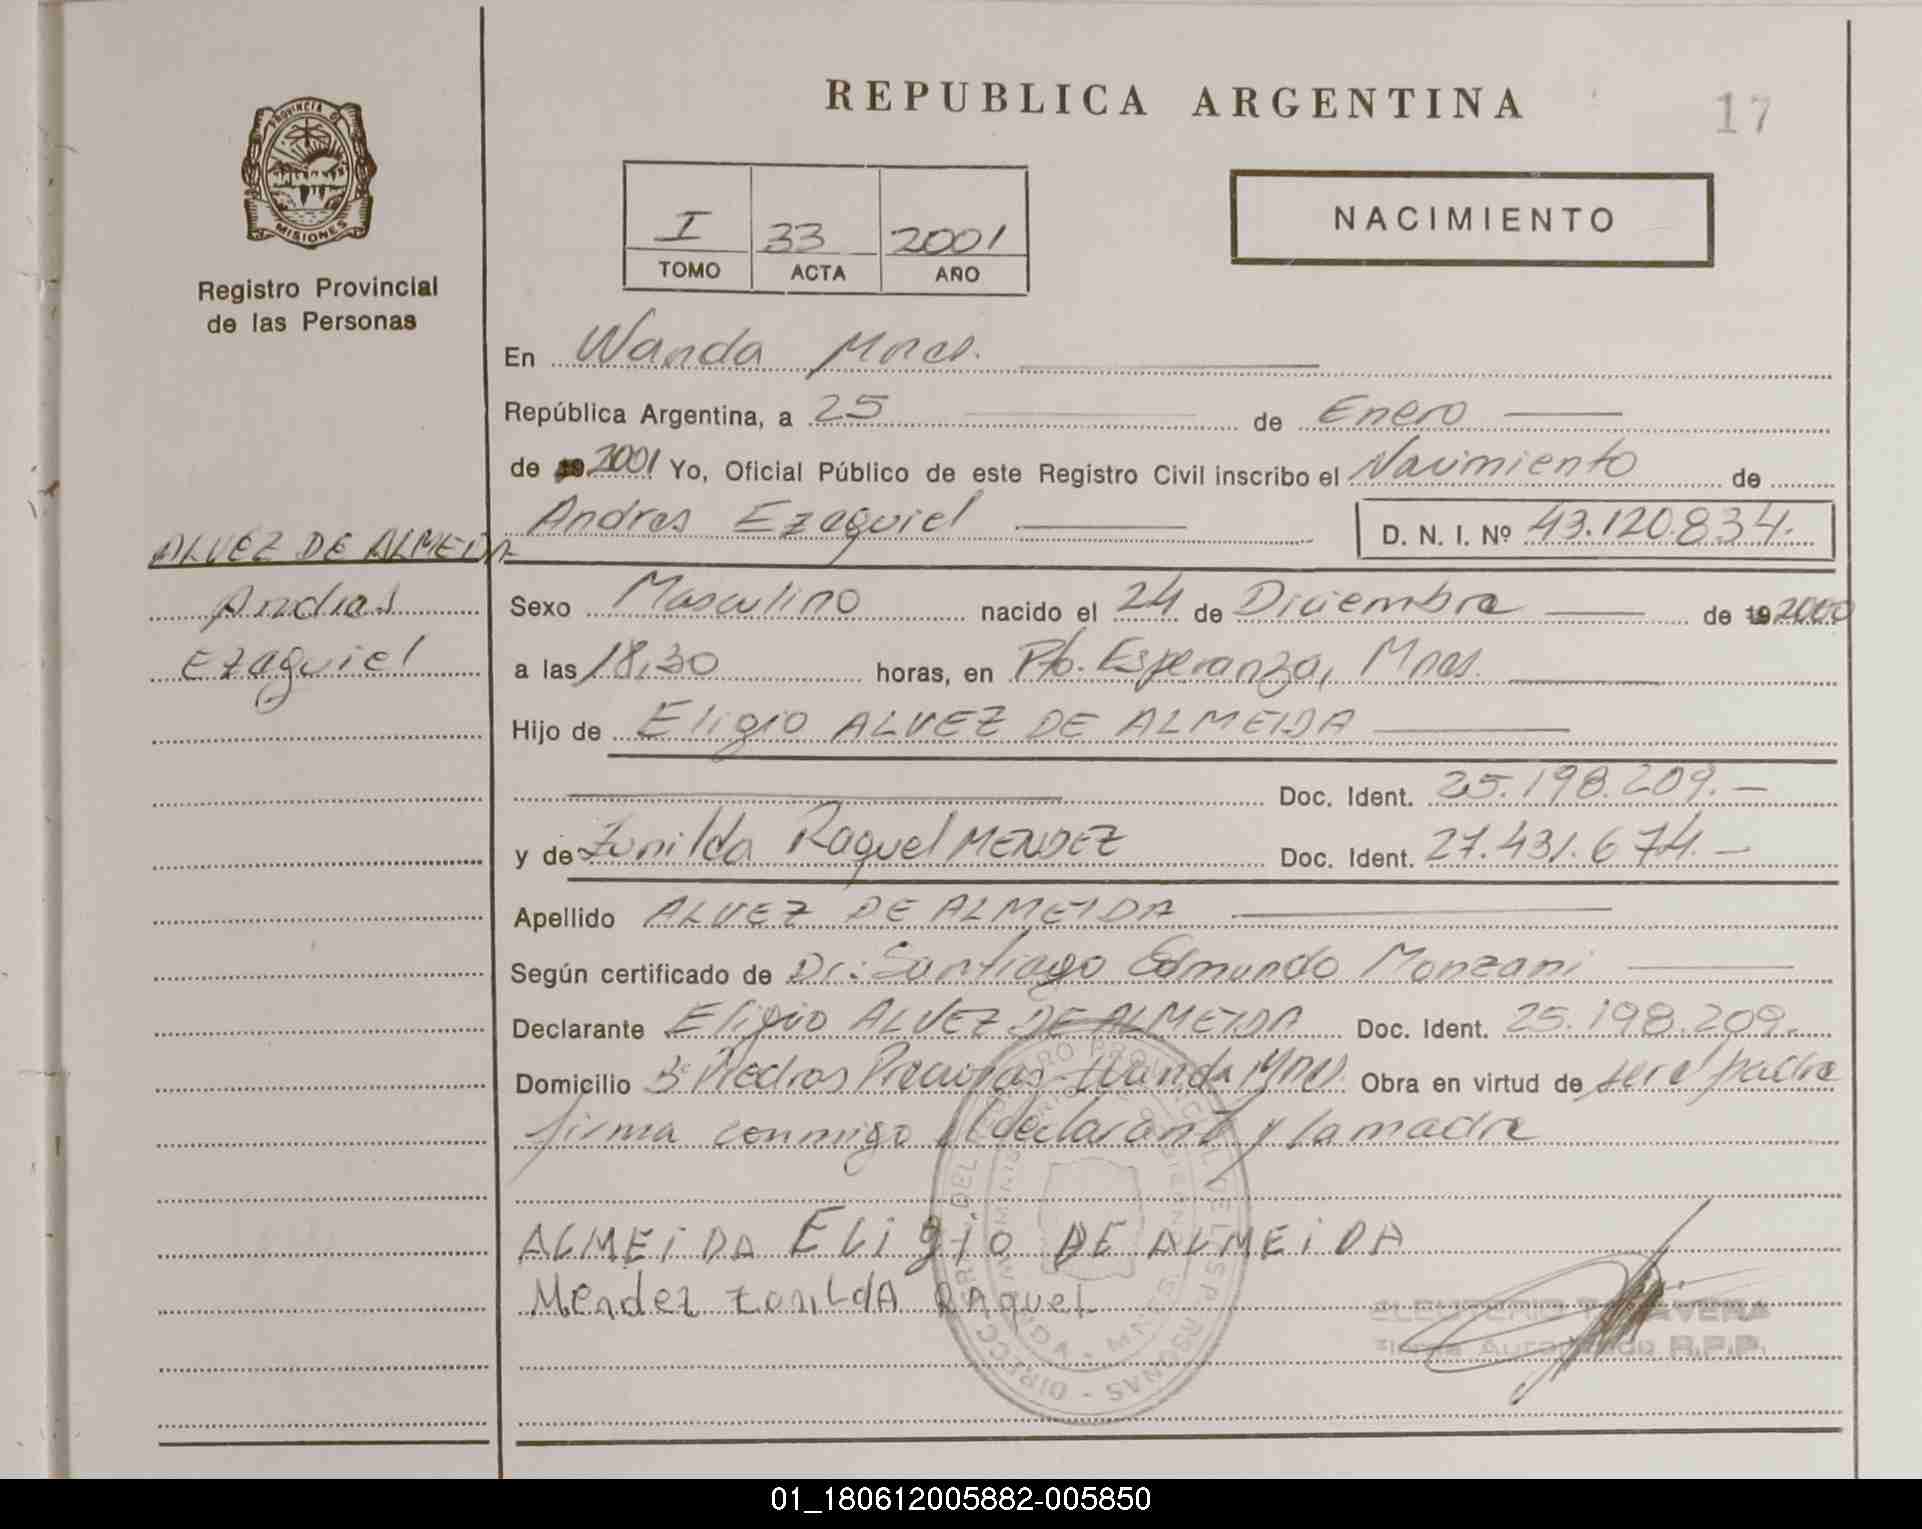 REPUBLICA ARGENTINA
17
PROVINCIA DE
MISIONES
Registro Provincial
de las Personas
I 33 2001
TOMO ACTA AÑO
NACIMIENTO
En Wanda Mnes.
República Argentina, a 25 de Enero
de 19 2001 Yo, Oficial Público de este Registro Civil inscribo el Nacimiento de
Andres Ezequiel D. N. I. Nº 43.120.834.
ALVEZ DE ALMEIDA
Andres
Ezequiel
Sexo Masculino nacido el 24 de Diciembre de 19 2000
a las 18,30 horas, en Pto. Esperanza, Mnes.
Hijo de Eligio ALVEZ DE ALMEIDA
Doc. Ident. 25.198.209.-
y de Zunilda Raquel MENDEZ Doc. Ident. 27.431.674.-
Apellido ALVEZ DE ALMEIDA
Según certificado de Dr.: Santiago Edmundo Monzani
Declarante Eligio ALVEZ DE ALMEIDA Doc. Ident. 25.198.209.
Domicilio Bº Piedras Preciosas-Wanda Mnes. Obra en virtud de ser el padre
firma conmigo el declarante y la madre
ALMEIDA ELigiO DE ALMEIDA
Mendez ZuniLdA RAquel
Firma Autorizada R.P.P.
01_180612005882-005850